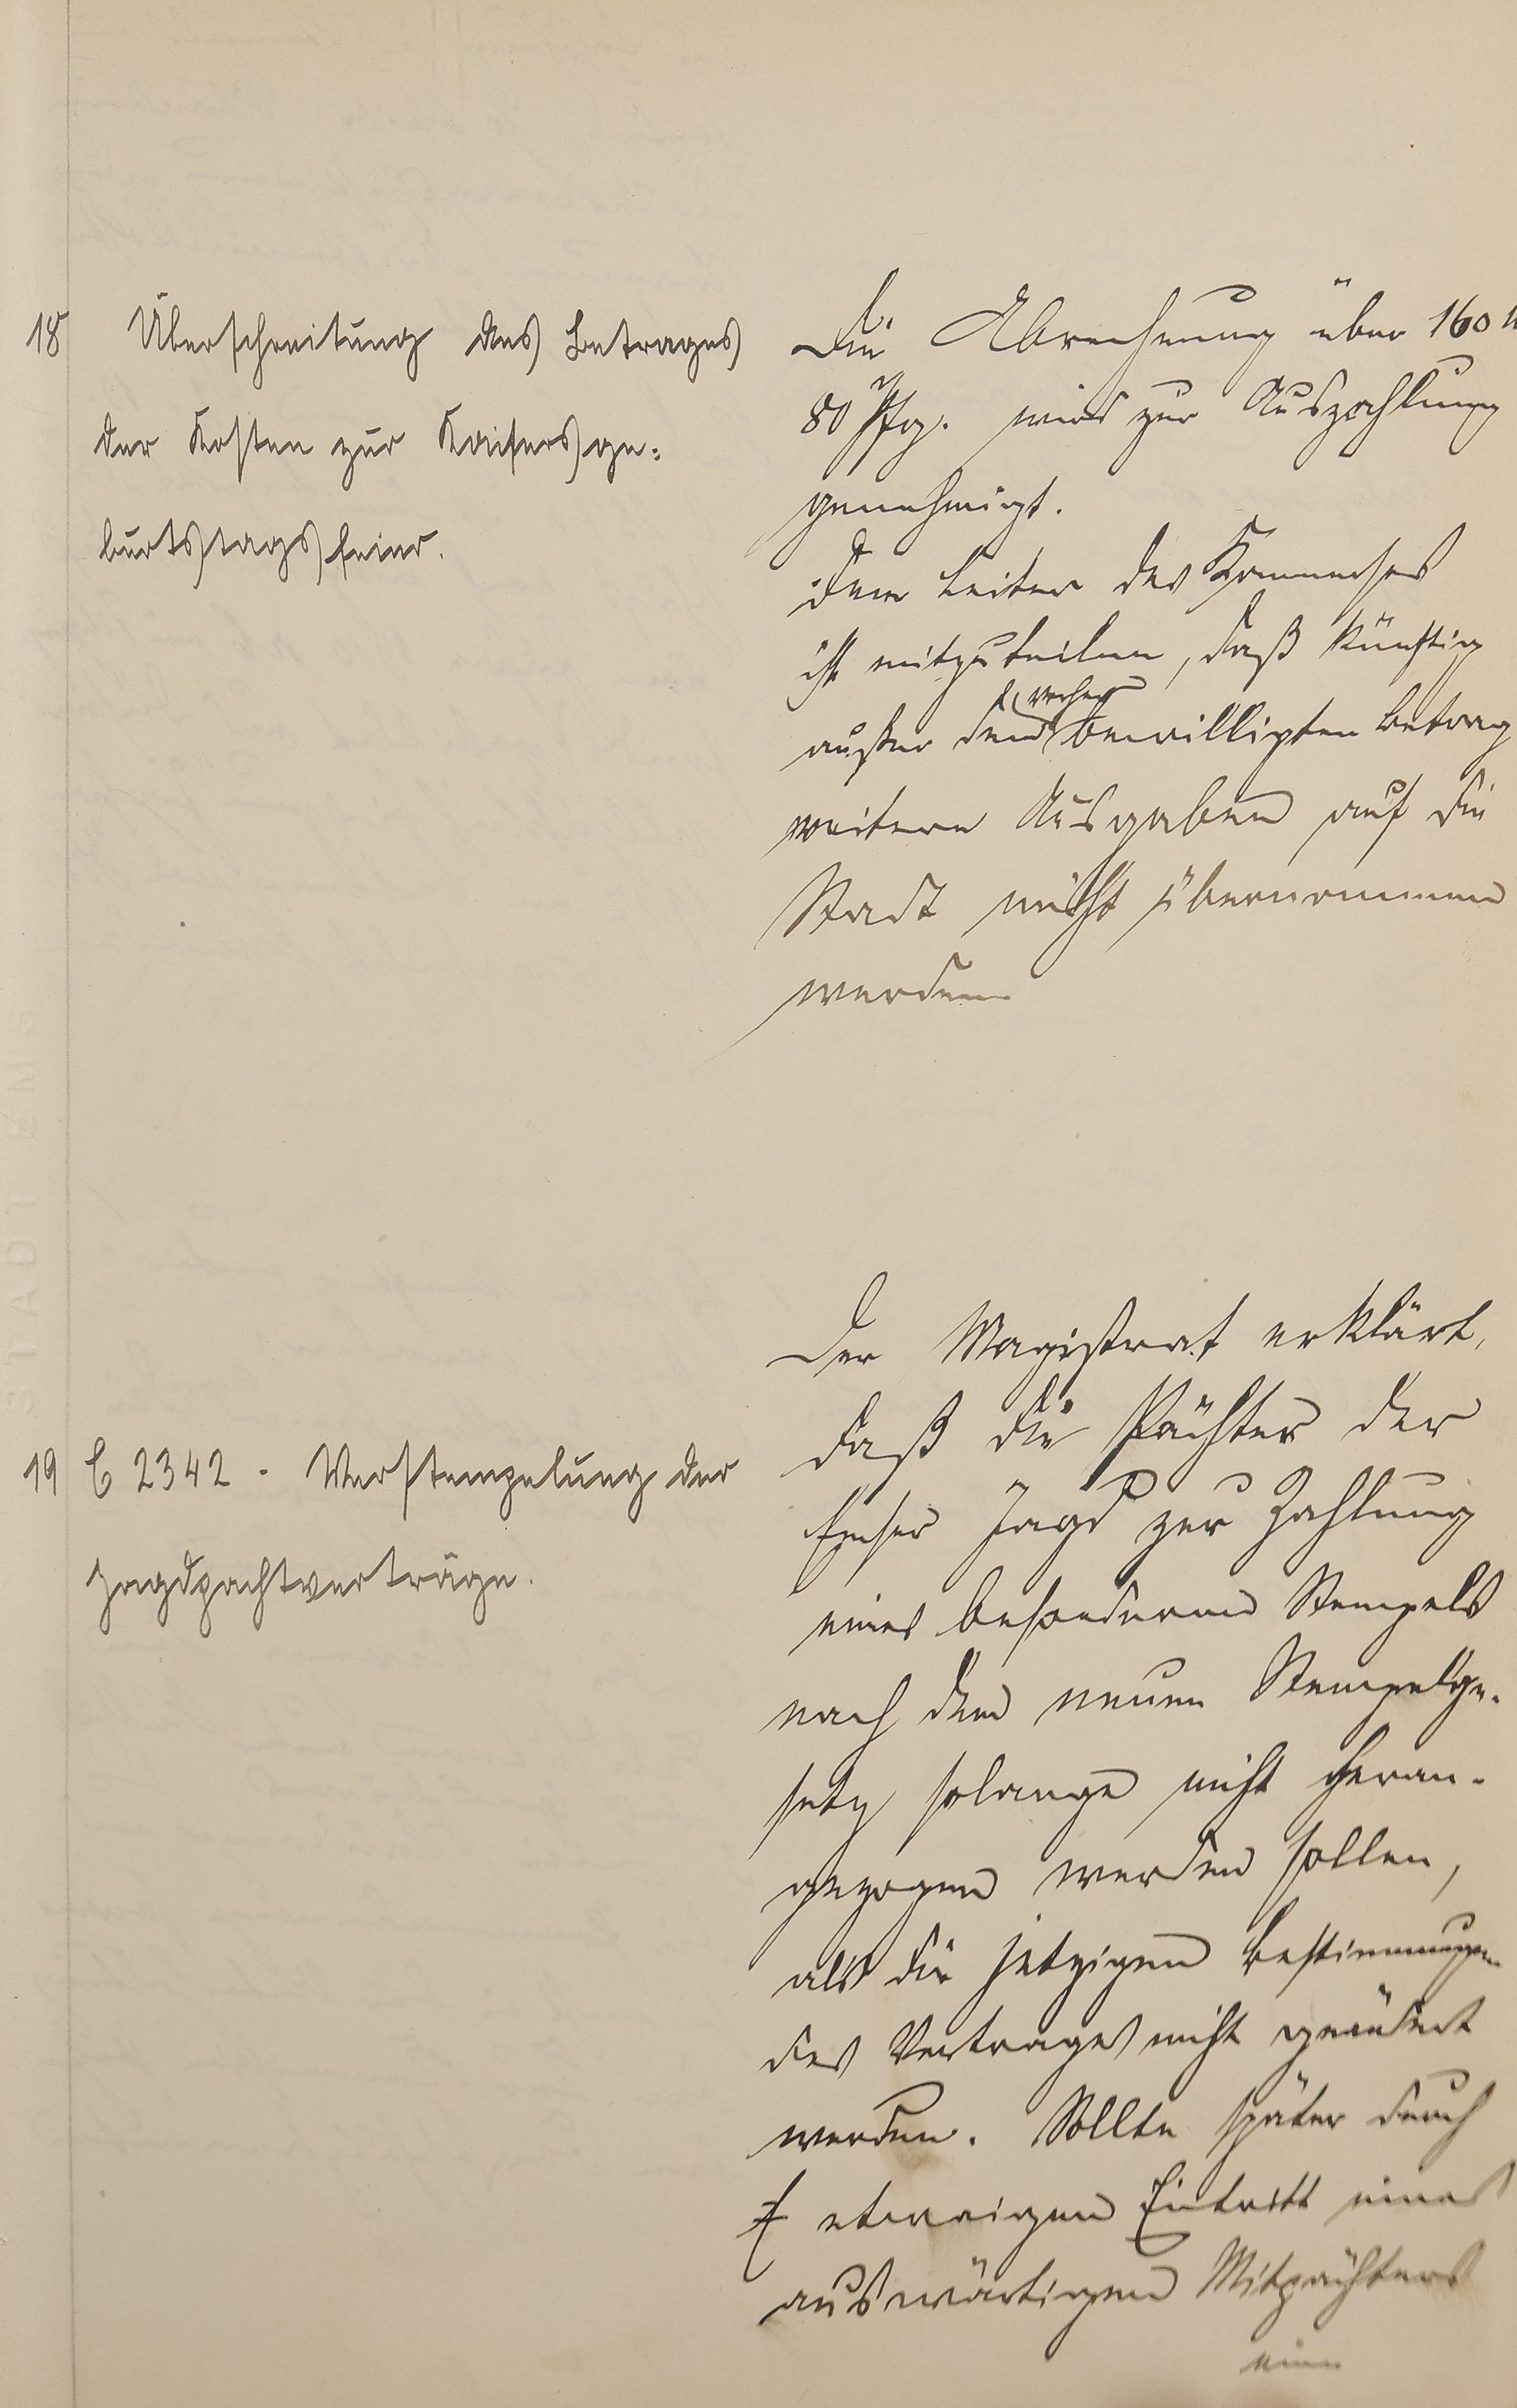 18 Überschreitung des Betrages
der Kosten zur Kaisersge-
burtstagsfeier.
Die Abrechnung über 160 M
80 Pfg. wird zur Auszahlung
genehmigt.
Dem Leiter des Kommerses
ist mitzuteilen, daß künftig
vorher
außer dem bewilligten Betrag
weitere Ausgaben auf die
Stadt nicht übernommen
werden
19 C 2342 - Verstempelung der
Jagdpachtverträge.
Der Magistrat erklärt,
daß die Pächter der
Emser Jagd zur Zahlung
eines besonderen Stempels
nach dem neuen Stempelge-
setz solange nicht heran-
gezogen werden sollen,
als die jetzigen Bestimmungen
des Vertrages nicht geändert
werden. Sollte später durch
etwaigen Eintritt eines
auswärtigen Mitpächters
eine
STADT EMS